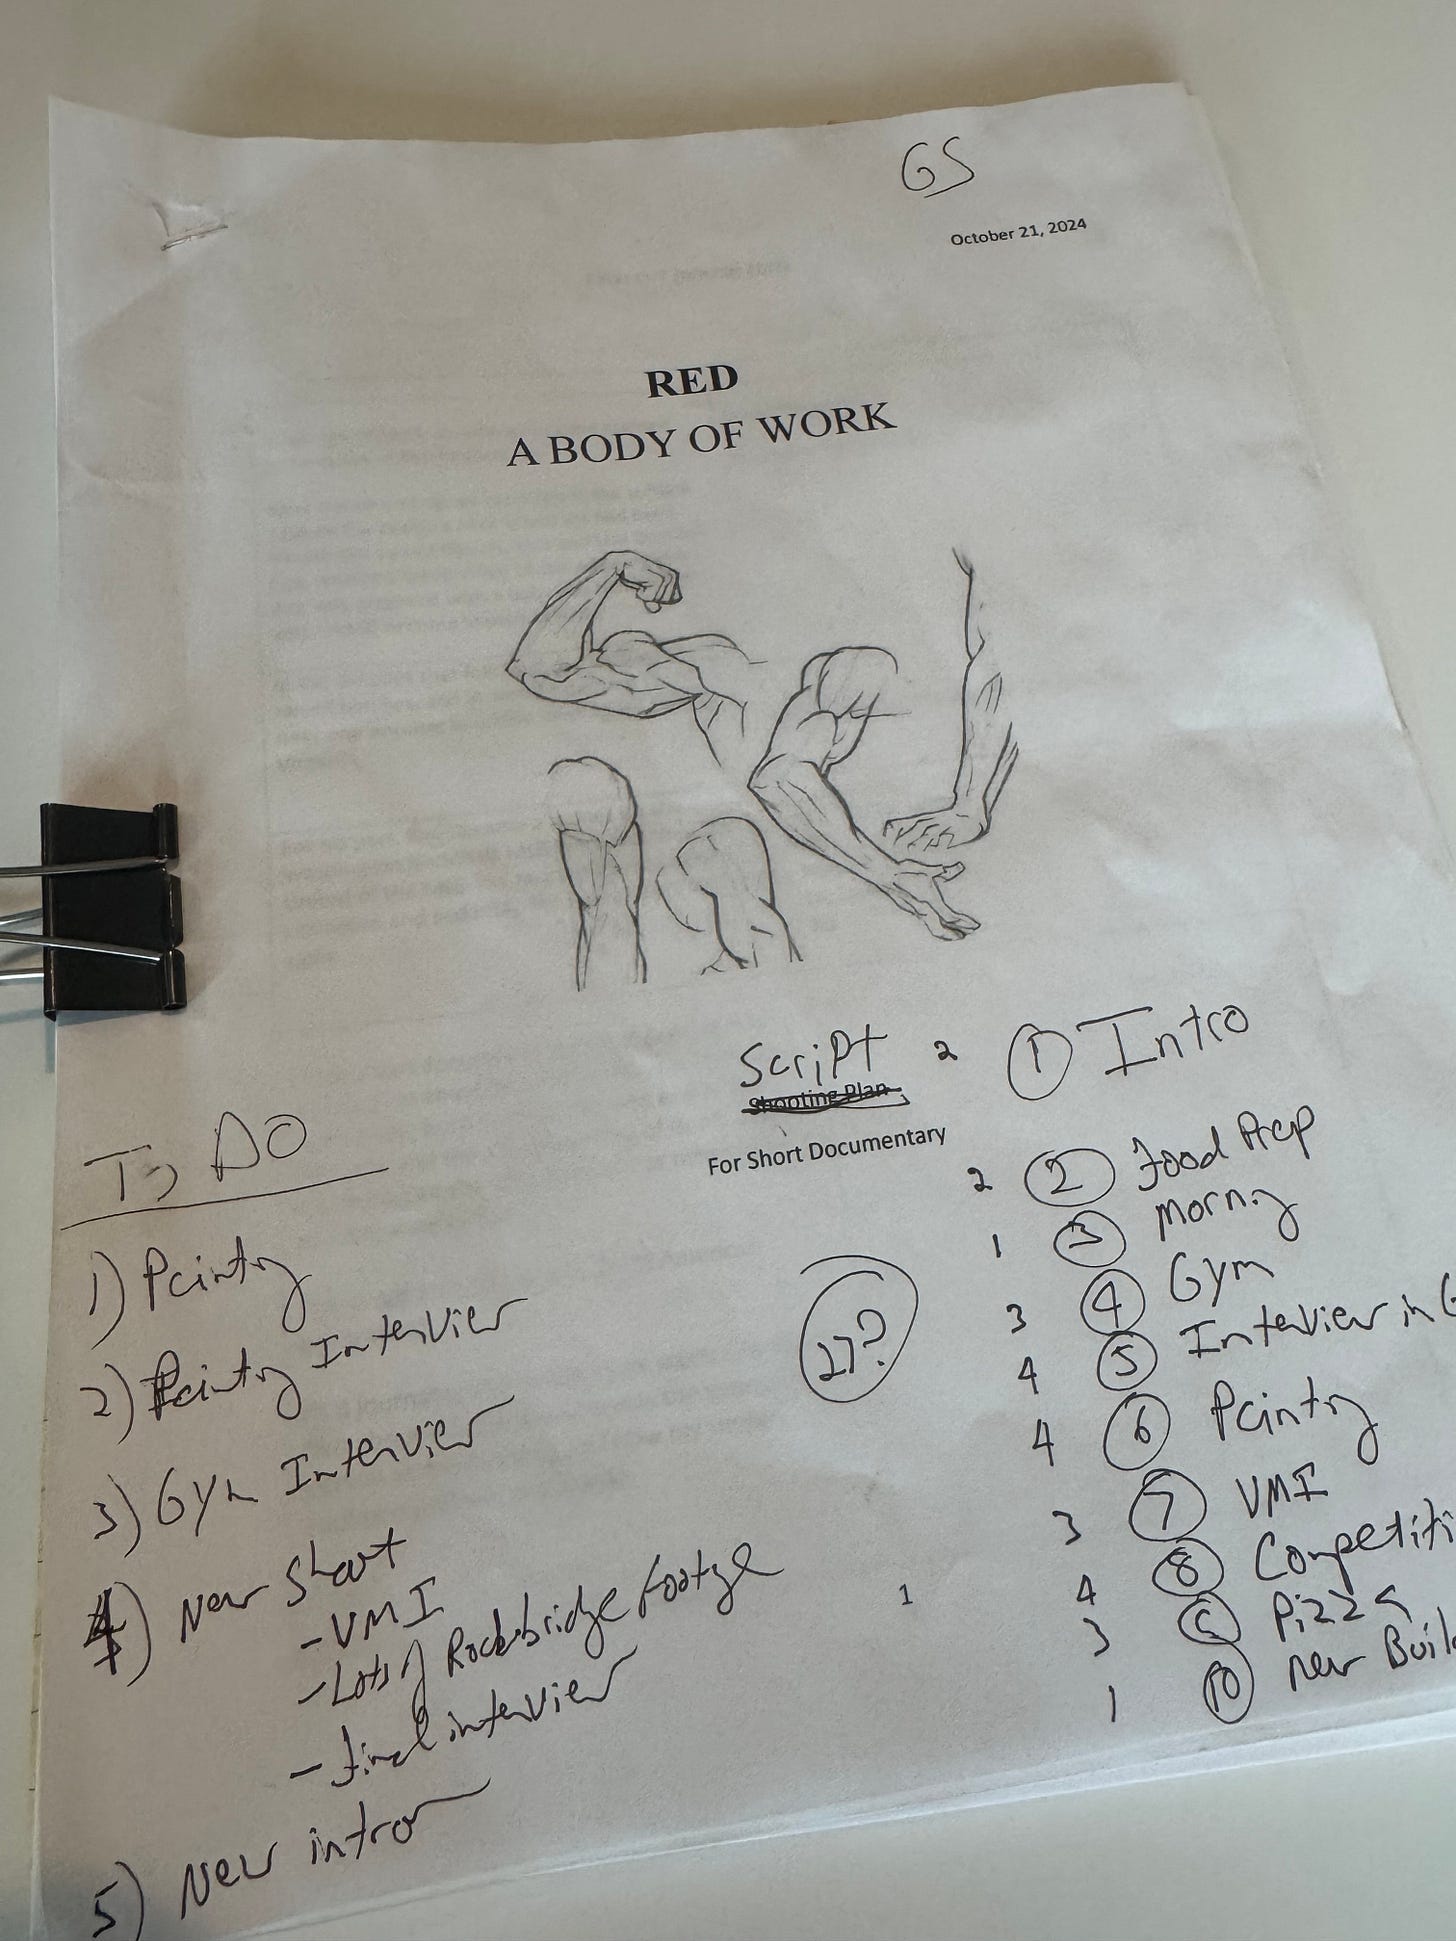 GS
October 21, 2024
RED
A BODY OF WORK
Script
Shooting Plan
For Short Documentary
To Do
1) Painting
2) Painting Interview
3) Gym Interview
4) New Shoot
- VMI
- Lots of Rockbridge footage
- final interview
5) New intro
27?
2 1 Intro
2 2 Food Prep
1 3 Morning
3 4 Gym
4 5 Interview in G
4 6 Painting
3 7 VMI
4 8 Competiti
3 9 Pizza
1 10 New Buil
1